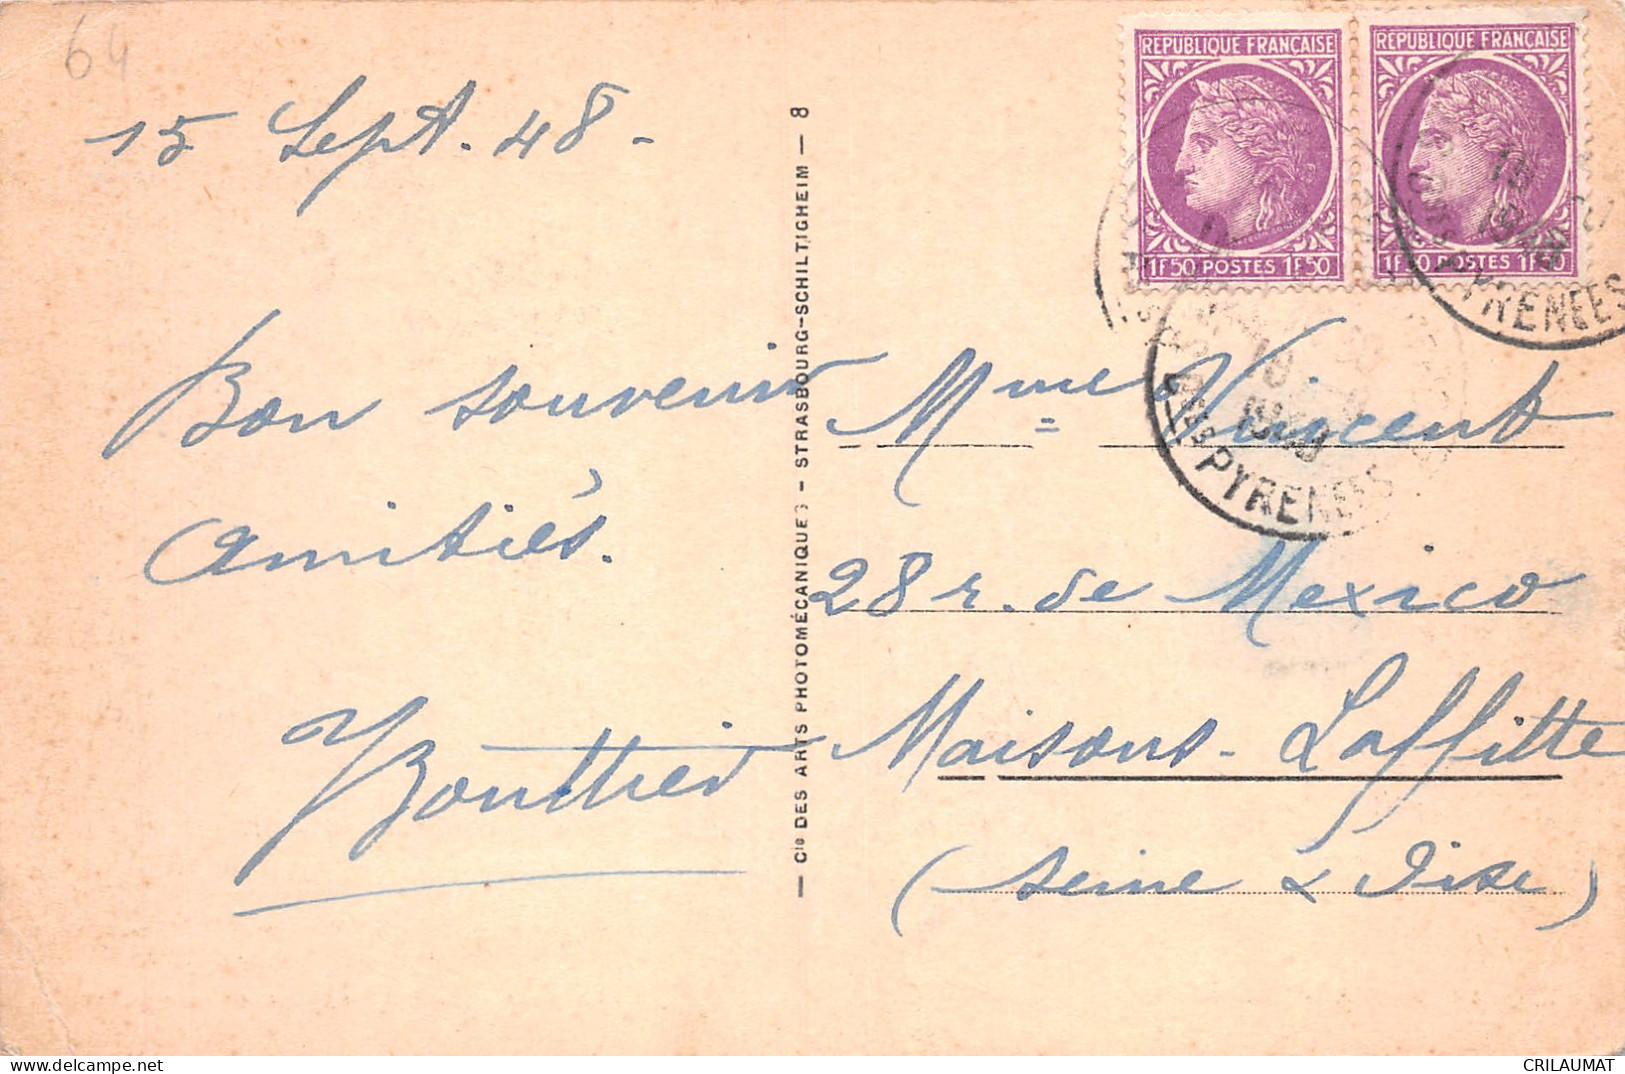 64
15 Sept. 48 -
Bon souvenir
Amitiés.
Bouthier
— Cie DES ARTS PHOTOMÉCANIQUES - STRASBOURG-SCHILTIGHEIM — 8
REPUBLIQUE FRANÇAISE
1F50 POSTES 1F50
REPUBLIQUE FRANÇAISE
1F50 POSTES 1F50
PYRENEES
PYRENEES
Mme Vincent
28 r. de Mexico
Maisons-Laffitte
(Seine & Oise)
CRILAUMAT